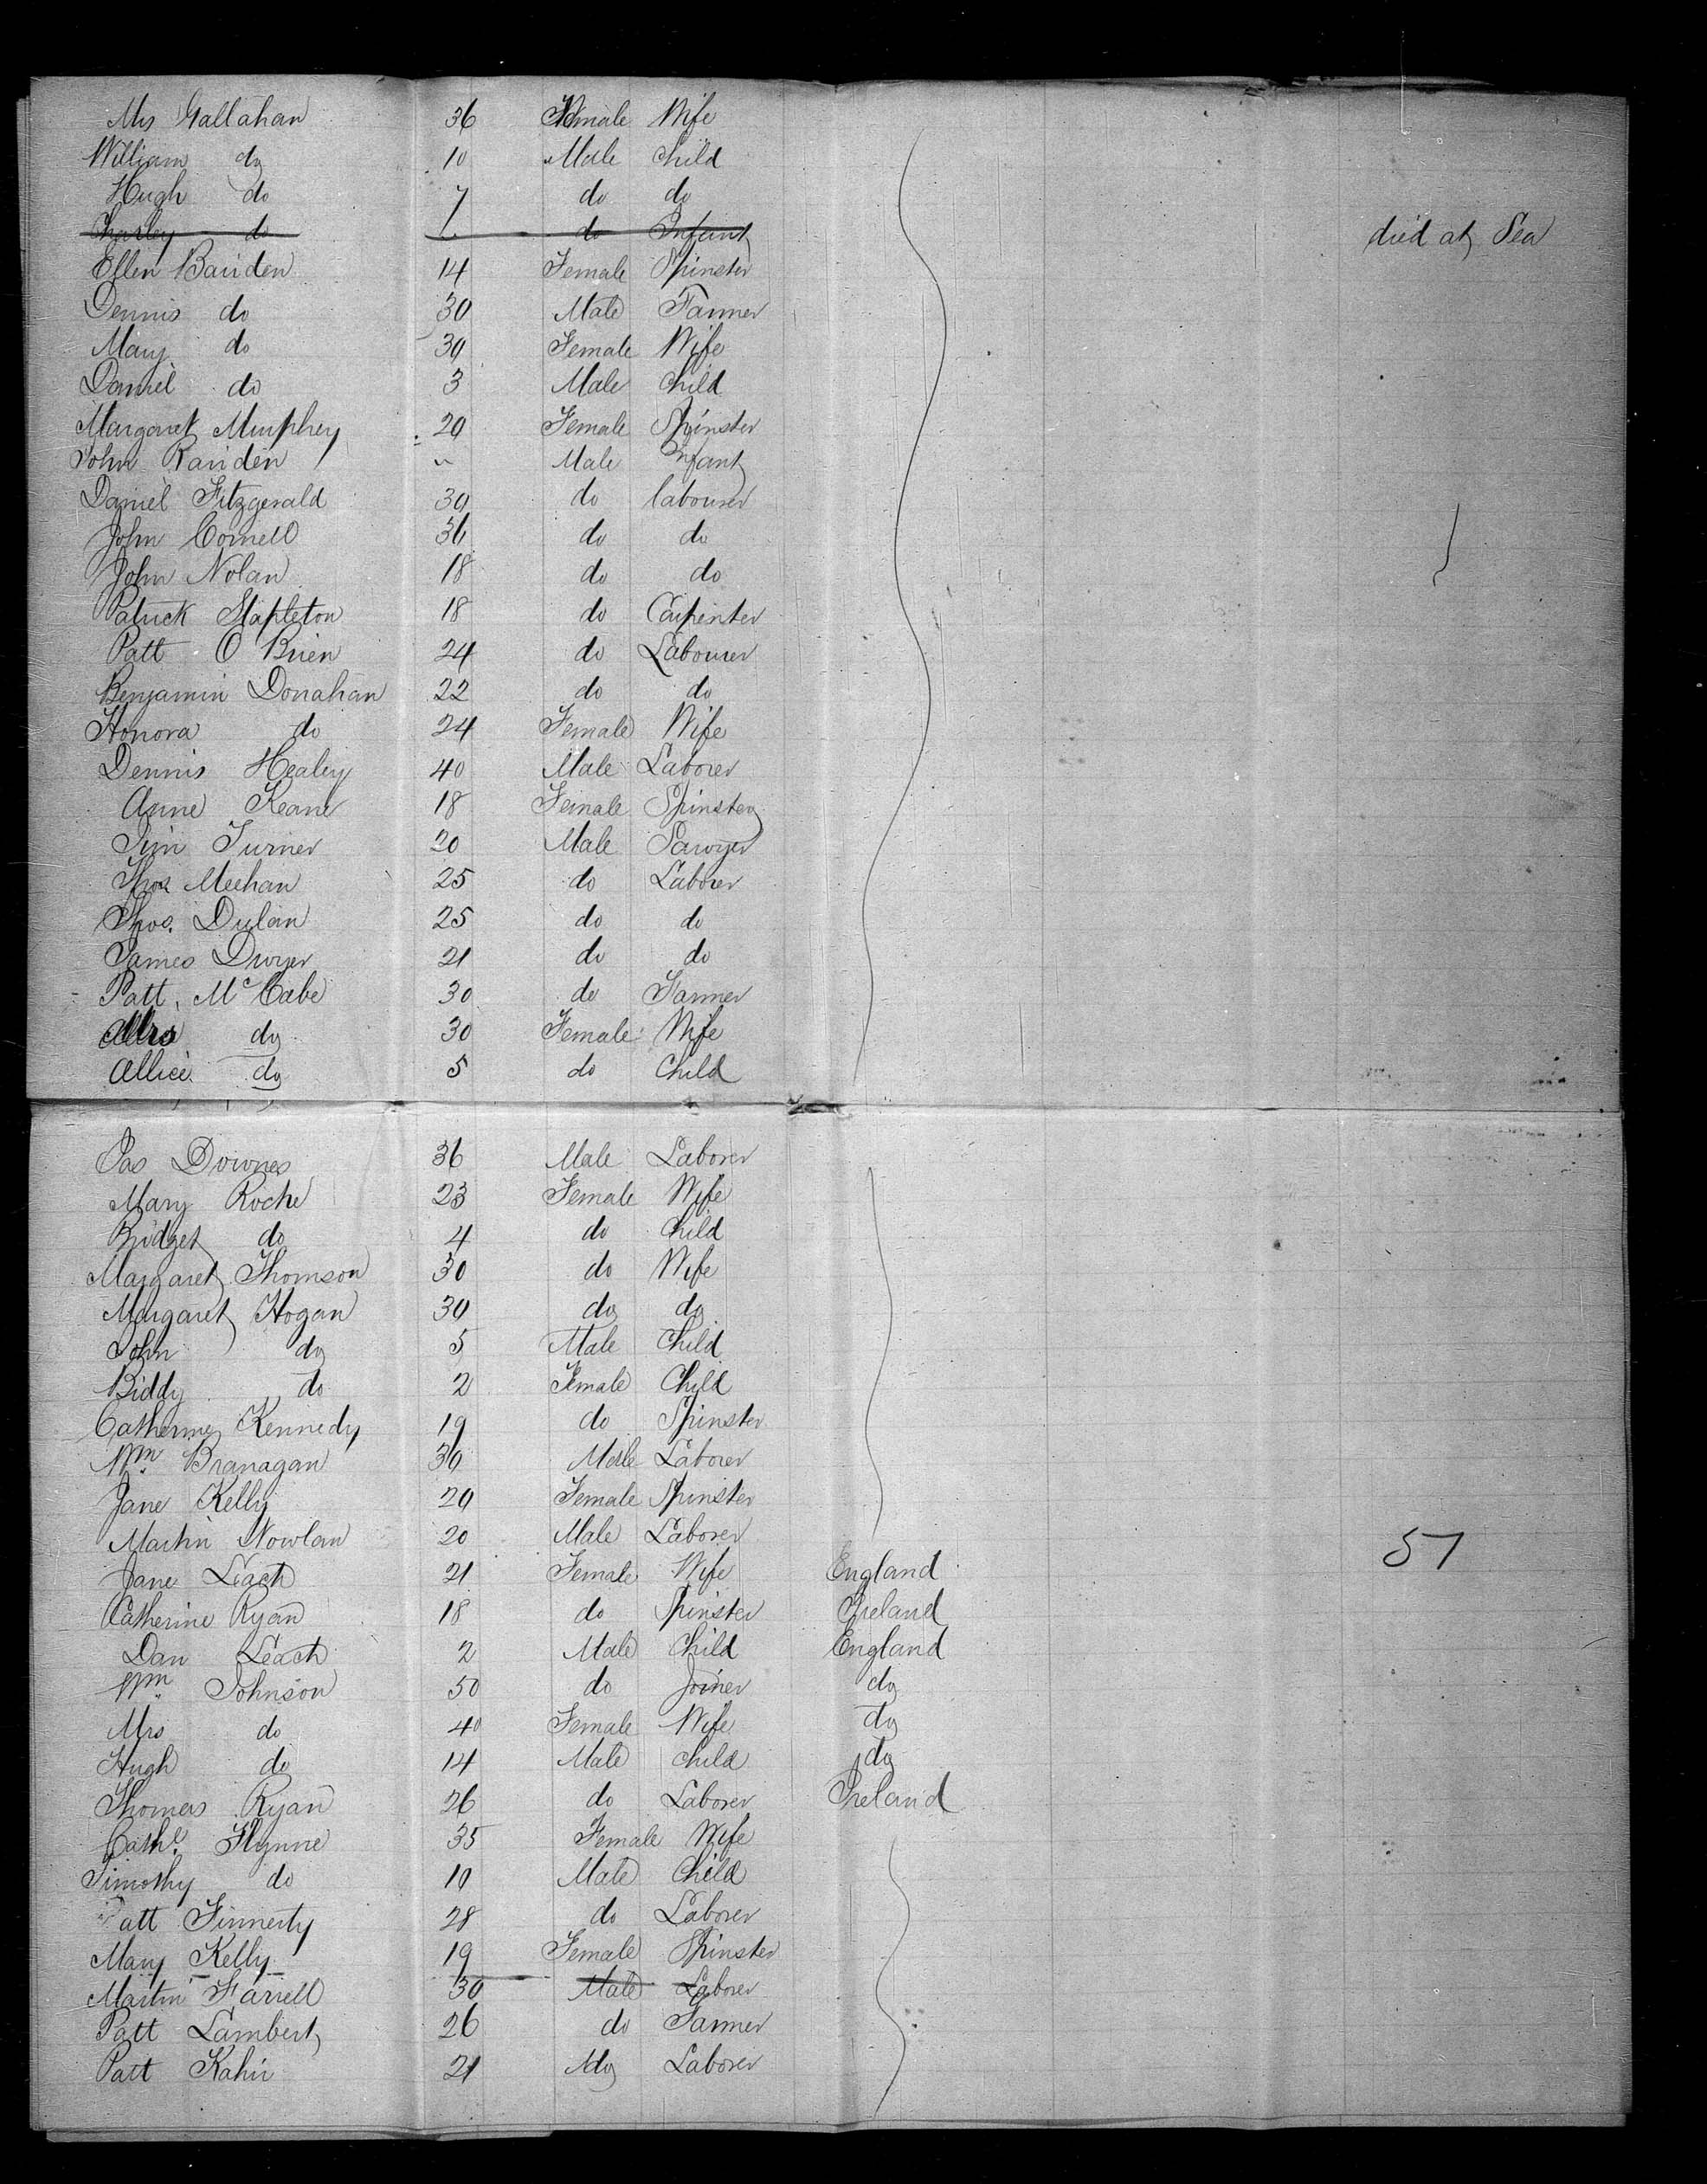 Mrs Gallahan 36 Female Wife
William do 10 Male Child
Hugh do 7 do do
Charley do 1 do Infant died at Sea
Ellen Bariden 14 Female Spinster
Dennis do 30 Male Farmer
Mary do 30 Female Wife
Daniel do 3 Male Child
Margaret Murphey 20 Female Spinster
John Rariden Male Infant
Daniel Fitzgerald 30 do labourer
John Cornell 36 do do
John Nolan 18 do do
Patrick Stapleton 18 do Carpenter
Patt O Brien 24 do Labourer
Benjamin Donahan 22 do do
Honora do 24 Female Wife
Dennis Healey 40 Male Laborer
Anne Keane 18 Female Spinster
Jim Turner 20 Male Sawyer
Thos Meehan 25 do Laborer
Thos. Dulan 25 do do
James Dwyer 21 do do
Patt. Mc Cabe 30 do Farmer
Mrs do 30 Female Wife
Allice do 5 do Child
Jas Downes 36 Male Laborer
Mary Roche 23 Female Wife
Bridget do 4 do Child
Margaret Thomson 30 do Wife
Margaret Hogan 30 do do
John do 5 Male Child
Biddy do 2 Female Child
Catherine Kennedy 19 do Spinster
Wm Branagan 30 Male Laborer
Jane Kelly 20 Female Spinster
Martin Nowlan 20 Male Laborer 57
Jane Leach 21 Female Wife England
Catherine Ryan 18 do Spinster Ireland
Dan Leach 2 Male Child England
Wm Johnson 50 do Joiner do
Mrs do 40 Female Wife do
Hugh do 14 Male child do
Thomas Ryan 26 do Laborer Ireland
Cathe. Flynne 35 Female Wife
Timothy do 10 Male Child
Patt Finnerty 28 do Laborer
Mary Kelly 19 Female Spinster
Martin Farrell 30 Male Laborer
Patt Lambert 26 do Farmer
Patt Kahir 21 do Laborer